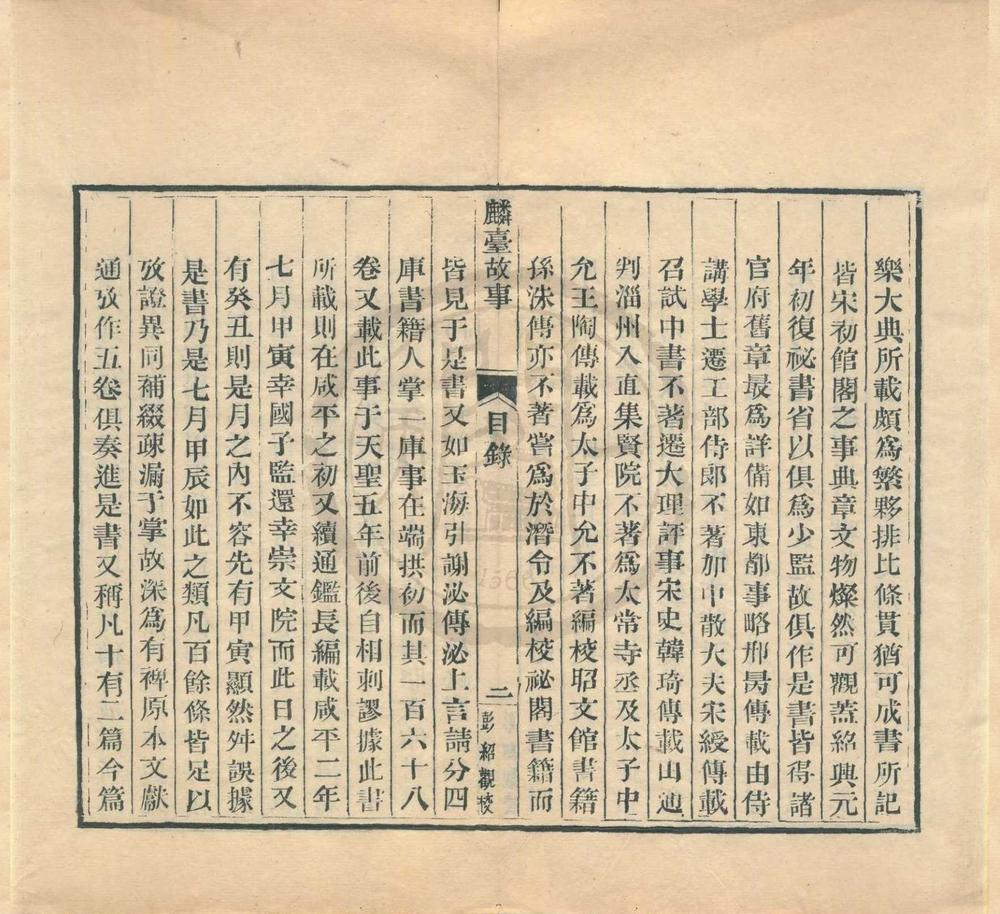 樂大典所載頗爲繁夥排比條貫猶可成書所記
皆宋初館閣之事典章文物燦然可觀蓋紹興元
年初復祕書省以俱爲少監故俱作是書皆得諸
官府舊章最爲詳備如東都事略邢昺傳載由侍
講學士遷工部侍郎不著加中散大夫宋綬傳載
召試中書不著遷大理評事宋史韓琦傳載由通
判淄州入直集賢院不著爲太常寺丞及太子中
允王陶傳載爲太子中允不著編校昭文館書籍
孫洙傳亦不著嘗爲於潛令及編校祕閣書籍而
麟臺故事 目錄 二 彭紹觀校
皆見于是書又如玉海引謝泌傳泌上言請分四
庫書籍人掌一庫事在端拱初而其一百六十八
卷又載此事于天聖五年前後自相刺謬據此書
所載則在咸平之初又續通鑑長編載咸平二年
七月甲寅幸國子監還幸崇文院而此日之後又
有癸丑則是月之內不容先有甲寅顯然舛誤據
是書乃是七月甲辰如此之類凡百餘條皆足以
攷證異同補綴疎漏于掌故深爲有裨原本文獻
通攷作五卷俱奏進是書又稱凡十有二篇今篇